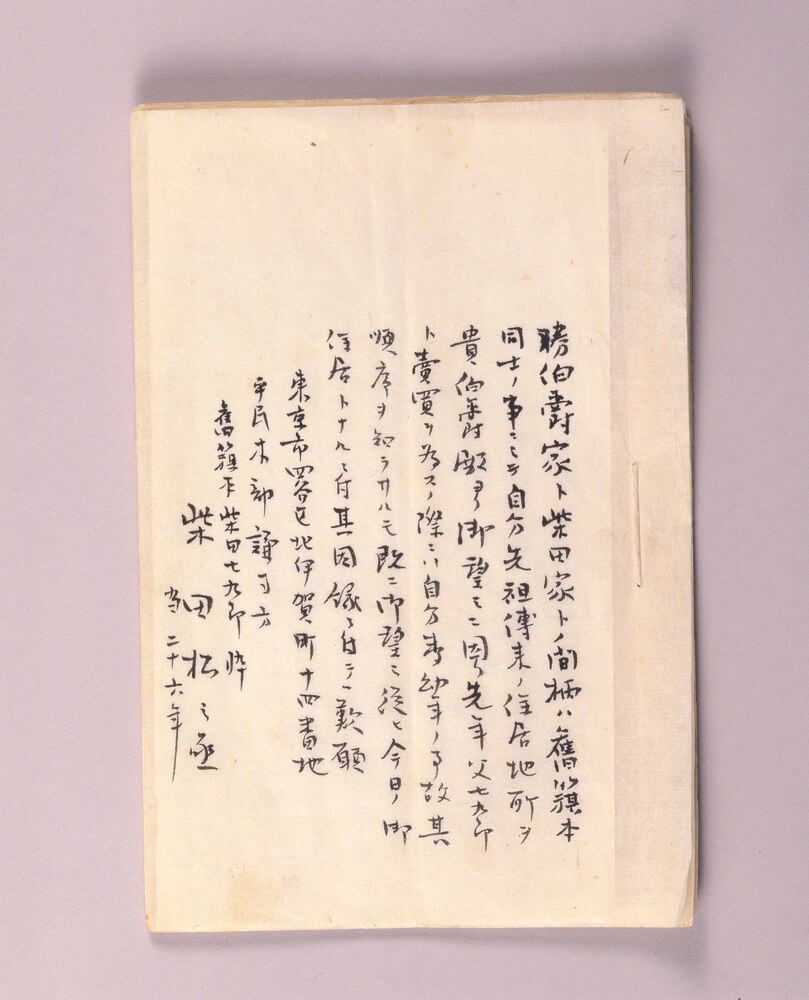 勝伯爵家ト柴田家トノ間柄ハ舊籏本
同士ノ事ニシテ自分先祖傳来ノ住居地所ヲ
貴伯爵殿ヨリ御望ミニ因リ先年父七九郎
ト賣買ヲ為スノ際ニハ自分事幼年ノ事故其
順序ヲ知ラサルモ既ニ御望ミ従ヒ今日ノ御
住居トナルニ付其因縁ニ付テ一歎願
東京市四谷区北伊賀町十四番地
平民木部議司方
舊籏下柴田七九郎忰
柴田松之亟
当二十六年